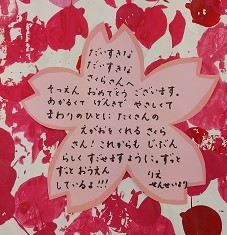 だいすきな
だいすきな
さくらさんへ
そつえん おめでとう ございます。
あかるくて げんきで やさしくて
まわりのひとに たくさんの
えがおを くれる さくら
さん！これからも じぶん
らしく すごせますように。ずっと
ずっと おうえん
しているよ!!! りえ
せんせいより